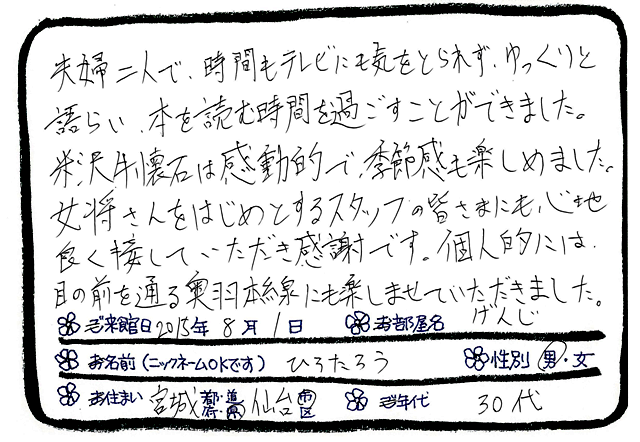 夫婦二人で、時間もテレビにも気をとられず、ゆっくりと
語らい、本を読む時間を過ごすことができました。
米沢牛懐石は感動的で、季節感も楽しめました。
女将さんをはじめとするスタッフの皆さまにも、心地
良く接していただき感謝です。個人的には、
目の前を通る奥羽本線にも楽しませていただきました。
ご来館日 2015年 8月 1日 お部屋名 げんじ
お名前(ニックネームOKです) ひろたろう 性別 男・女
お住まい 宮城 都・道・府・県 仙台 市・区 ご年代 30代